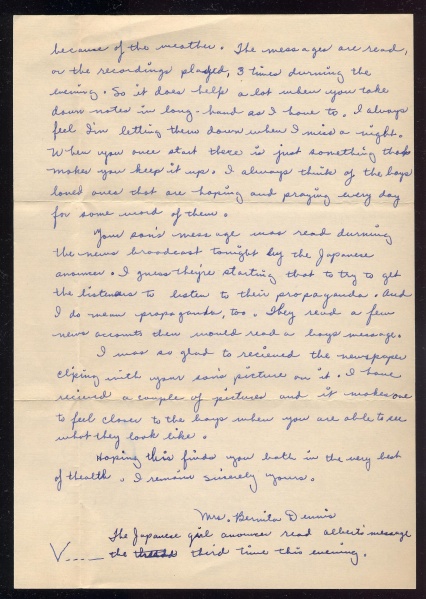 because of the weather. The messages are read,
or the recordings played, 3 times durning the
evening. So it does help a lot when you take
down notes in long-hand as I have to. I always
feel I'm letting them down when I miss a night.
When you once start there is just something that
makes you keep it up. I always think of the boys
loved ones that are hoping and praying every day
for some word of them.
Your son's message was read durning
the news broadcast tonight by the Japanese
anouncer. I guess they're starting that to try to get
the listeners to listen to their propaganda. And
I do mean propaganda, too. They read a few
news accounts then would read a boys message.
I was so glad to recieved the newspaper
cliping with your son's picture on it. I have
recived a couple of pictures and it makes one
to feel closer to the boys when you are able to see
what they look like.
Hoping this finds you both in the very best
of Health. I remain sincerely yours.
Mrs. Bernita Dennis
The Japanese girl anouncer read Albert's message
V..... the third time this evening.